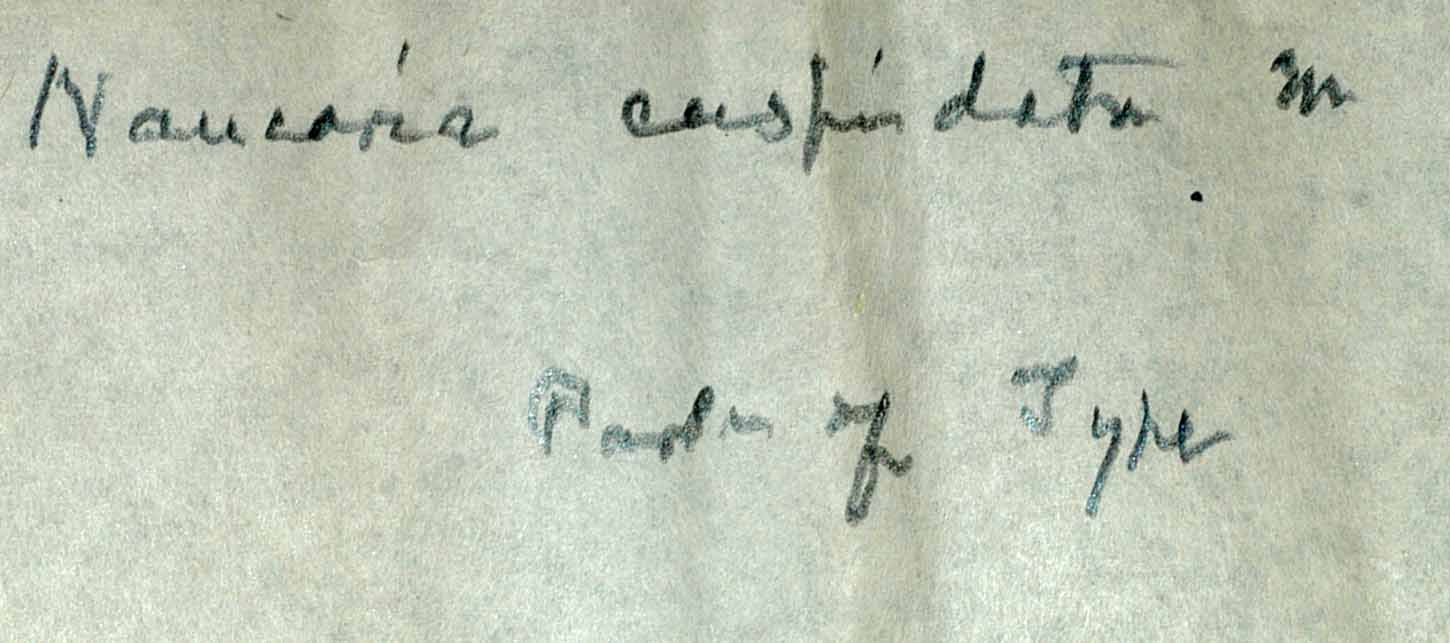 Naucoria cuspidata m
Part of Type